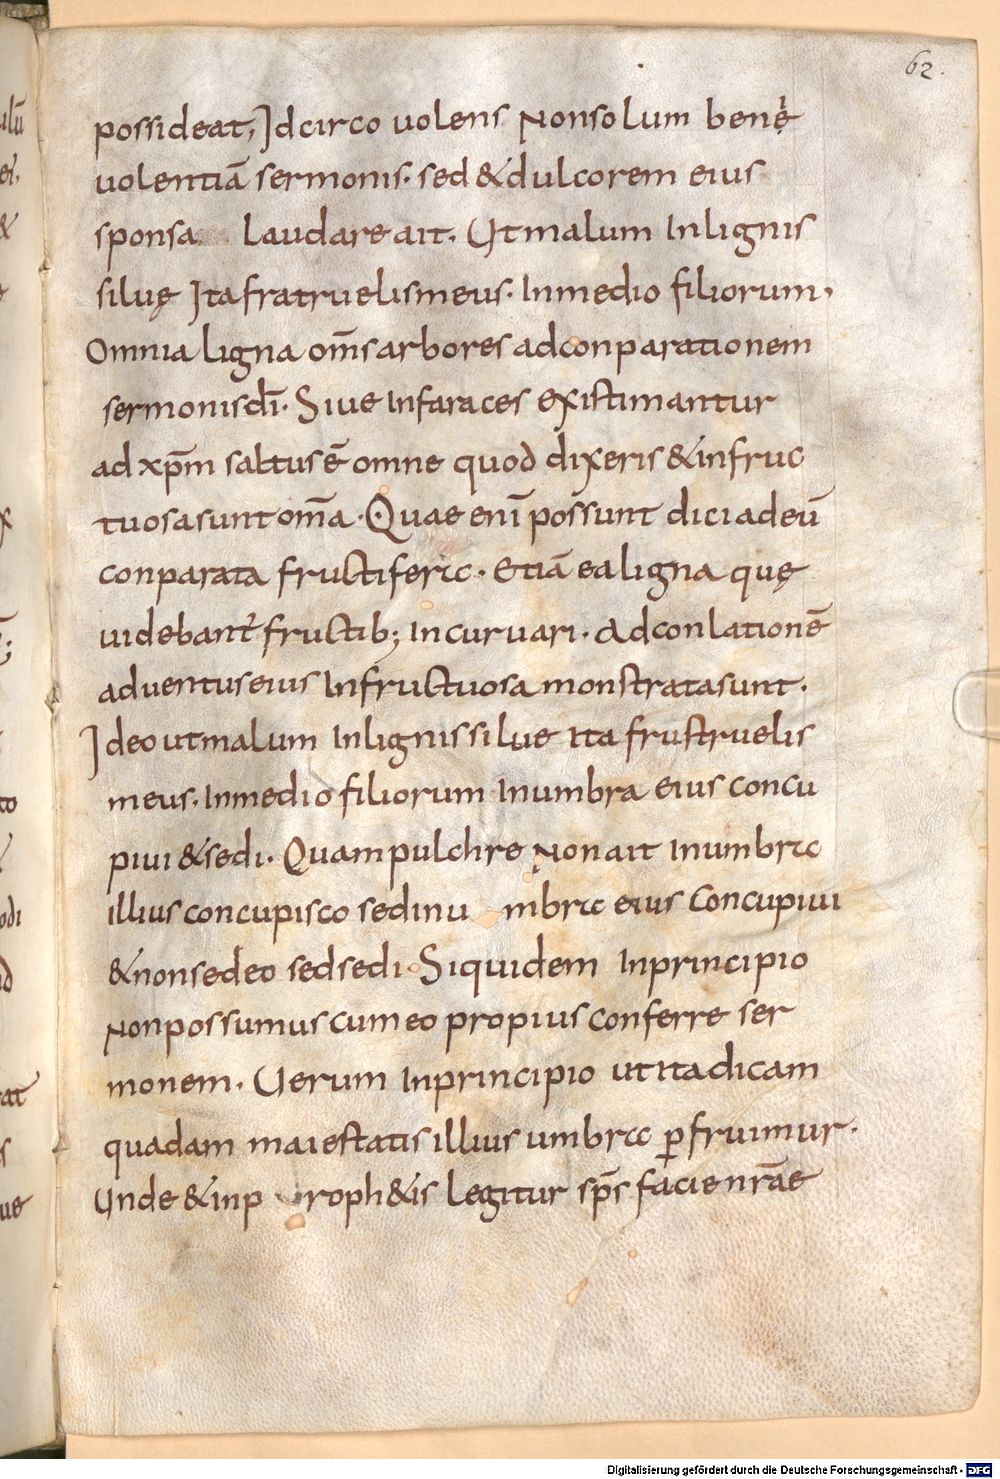 62.
possideat, Idcirco uolens Nonsolum benę
uolentiā sermonis. sed &dulcorem eius
sponsa laudare ait. Utmalum Inlignis
siluę Ita fratruelismeus. Inmedio filiorum,
Omnia ligna om̅s arbores adconparationem
sermonis di̅. Siue Infaraces existimantur
ad xp̅m saltus ē omne quod dixeris &infruc
tuosa sunt om̅a. Quae eni̅ possunt dici ad eū
conparata fructifera. Etiā ea ligna quę
uidebant̃ fructib; Incuruari. Adconlationē
aduentus eius Infructuosa monstrata sunt.
Ideo utmalum Inlignis silue Ita frustruelis
meus. Inmedio filiorum Inumbra eius concu
piui &sedi. Quam pulchre Non ait Inumbra
illius concupisco sed inu mbra eius Concupiui
&nonsedeo sed sedi. Siquidem Inprincipio
Nonpossumus cum eo propius conferre ser
monem. Uerum Inprincipio ut ita dicam
quadam maiestatis illius umbra ꝑfruimur.
Unde &inp roph&is legitur sp̅s facie nr̅ae
Digitalisierung gefördert durch die Deutsche Forschungsgemeinschaft - DFG